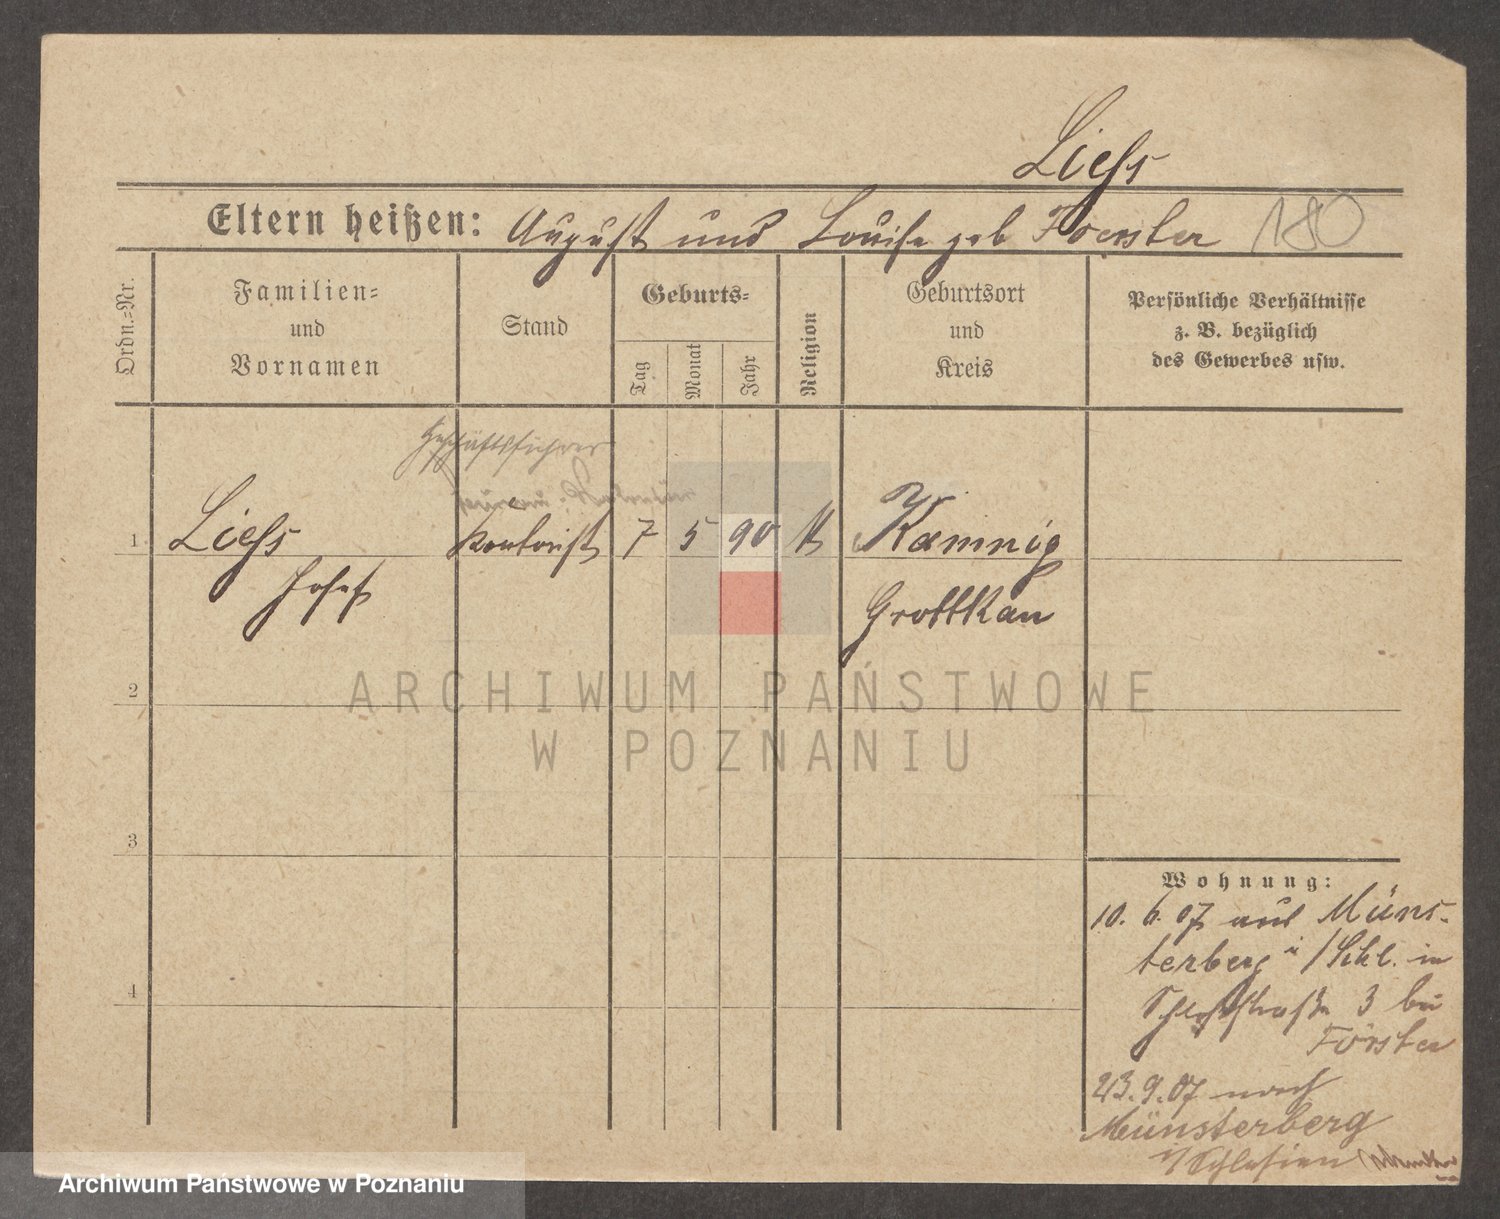 Liehs
Eltern heißen: August und Louise geb Foerster 180
Ordn.=Nr.
Familien=
und
Vornamen
Stand
Geburts=
Tag
Monat
Jahr
Religion
Geburtsort
und
Kreis
Persönliche Verhältnisse
z. B. bezüglich
des Gewerbes usw.
Geschäftsführer
1 Liehs Kontorist 7 5 90 K Kamnig
Josef Grottkau
2
3
4
Wohnung:
10. 6. 07 aus Müns-
terberg i/Schl. in
Schloßstraße 3 bei
Förster
23. 9. 07 nach
Münsterberg
i/Schlesien
ARCHIWUM PAŃSTWOWE
W POZNANIU
Archiwum Państwowe w Poznaniu